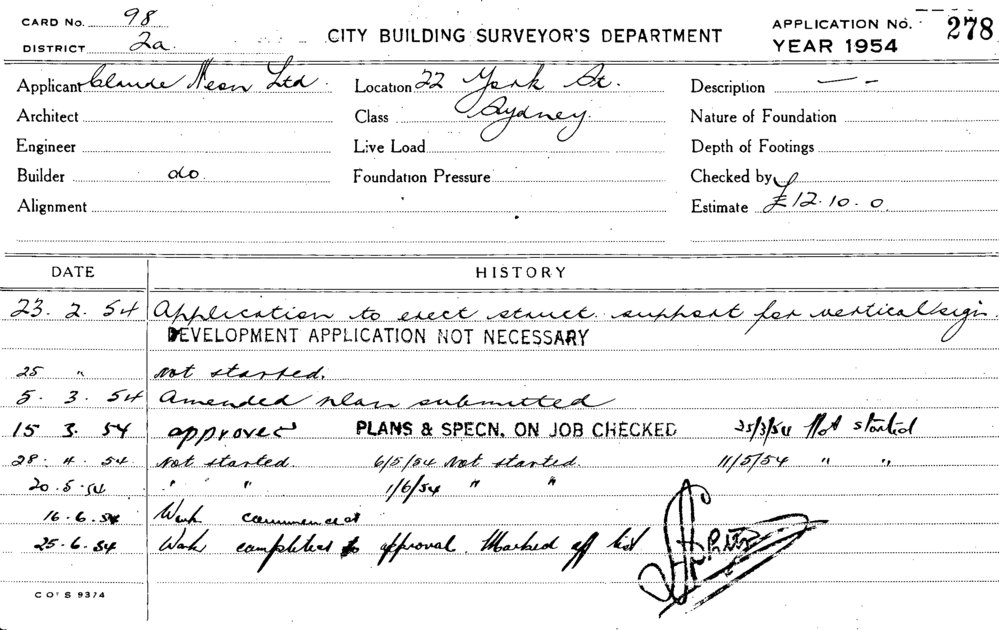 CARD No. 98
DISTRICT 2a.
CITY BUILDING SURVEYOR'S DEPARTMENT
APPLICATION No. 278
YEAR 1954
Applicant Claude Neon Ltd. Location 22 York St. Description — -
Architect Class Sydney. Nature of Foundation
Engineer Live Load Depth of Footings
Builder do Foundation Pressure Checked by
Alignment Estimate £12.10.0
DATE HISTORY
23. 2. 54 Application to erect struct. support for vertical sign.
DEVELOPMENT APPLICATION NOT NECESSARY
25 " Not started.
5. 3. 54 Amended plan submitted
15 3. 54 approved PLANS & SPECN. ON JOB CHECKED 25/3/54 Not started
28. 4. 54 Not started. 6/5/54 Not started. 11/5/54 " "
20.5.54 " " 1/6/54 " "
16.6.54 Work commenced
25.6.54 Work completed to approval. Marked off list
C O' S 9374